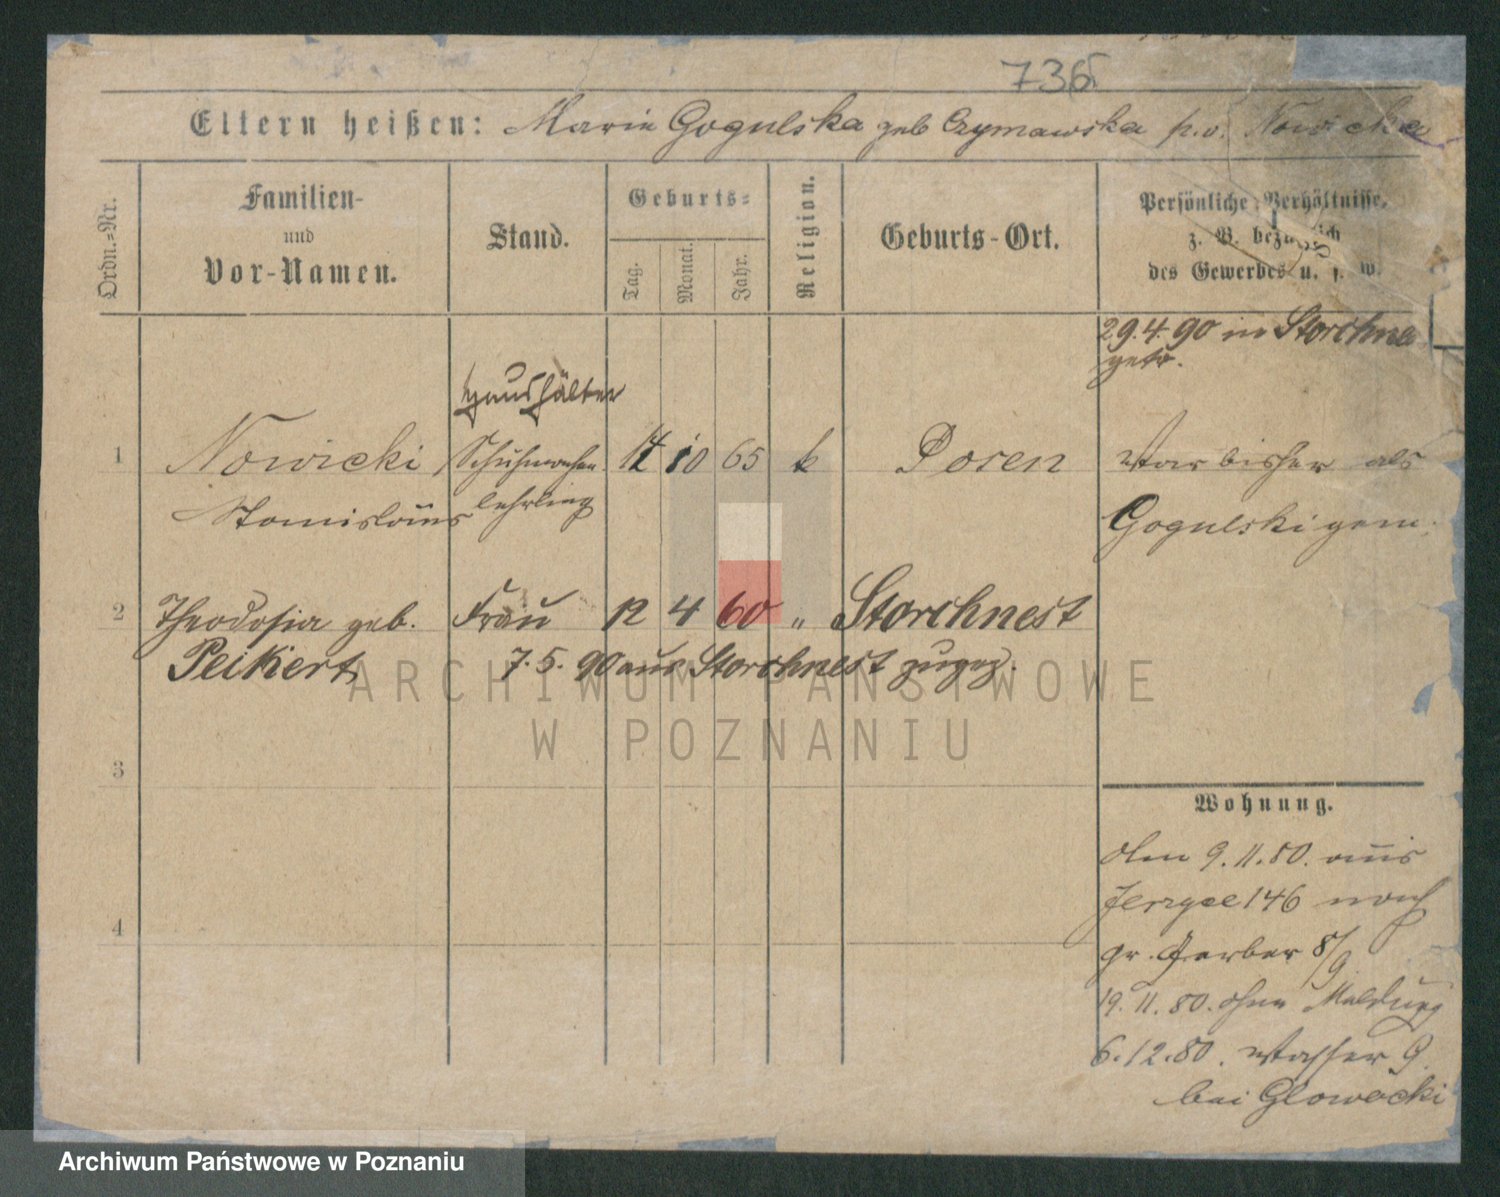 736
Eltern heißen: Marie Gogulska geb Czymawska p.v. Nowicka
Ordn.-Nr.
Familien-
und
Vor-Namen.
Stand.
Geburts-
Tag.
Monat.
Jahr.
Religion.
Geburts-Ort.
Persönliche Verhältnisse,
z. B. bezüglich
des Gewerbes u. s. w.
29.4.90 in Storchnes
getr.
Haushälter
1 Nowicki Schuhmacher 10 65 k Posen War bisher als
Stanislaus lehrling Gogulski gem.
2 Theodosia geb. Frau 12 4 60 " Storchnest
Peikert 7.5.90 aus Storchnest zugez.
3
4
Wohnung.
den 9.11.80. aus
Jerzyce 146 nach
gr. Gerber 8/9
19.11.80. ohne Meldung
6.12.80. Wasser 9.
bei Glowacki
ARCHIWUM PAŃSTWOWE
W POZNANIU
Archiwum Państwowe w Poznaniu